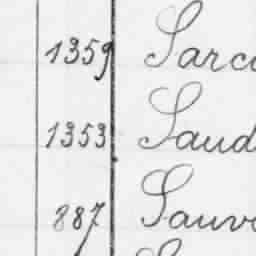 1359 Sarc
1353 Saud
887 Sauv